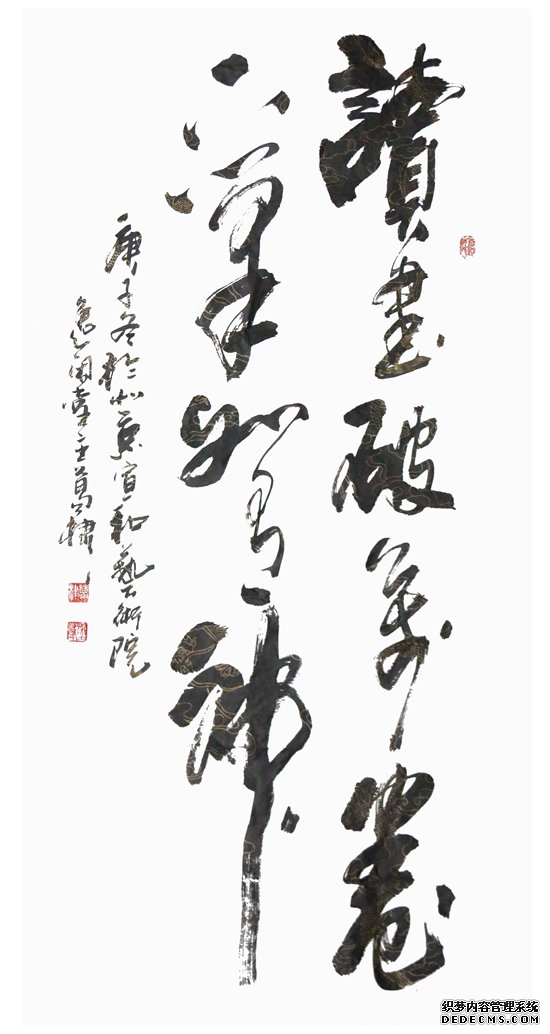 讀書破萬卷
下筆如有神
庚子冬於北京宣和藝術院
園堂主
织梦内容管理系统
DEDECMS.COM